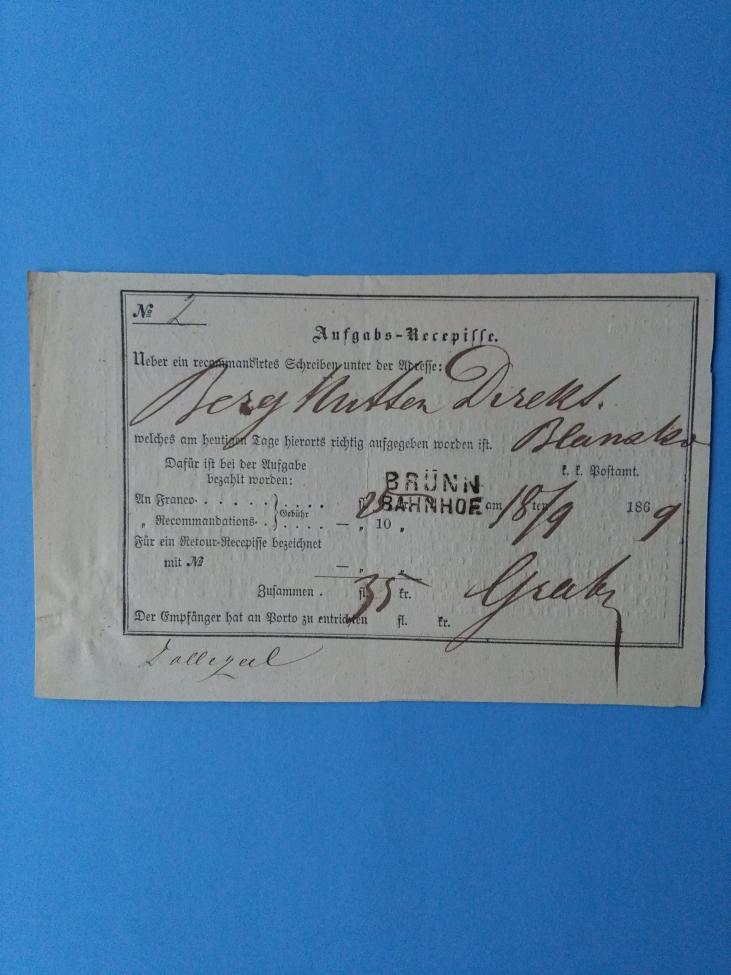 № 2
Aufgabs-Recepisse.
Ueber ein recommandirtes Schreiben unter der Adresse:
Berg Hütten Direkt.
welches am heutigen Tage hierorts richtig aufgegeben worden ist. Blansko
Dafür ist bei der Aufgabe
bezahlt worden:
k. k. Postamt.
BRÜNN
BAHNHOF
An Franco . . . . . . . . . . fl. 25 am 18/9 ten 1869
„ Recommandations- . . . . . — „ 10 „
Gebühr
Für ein Retour-Recepisse bezeichnet
mit № — „ „
Zusammen . fl. 35 kr.
Der Empfänger hat an Porto zu entrichten fl. kr.